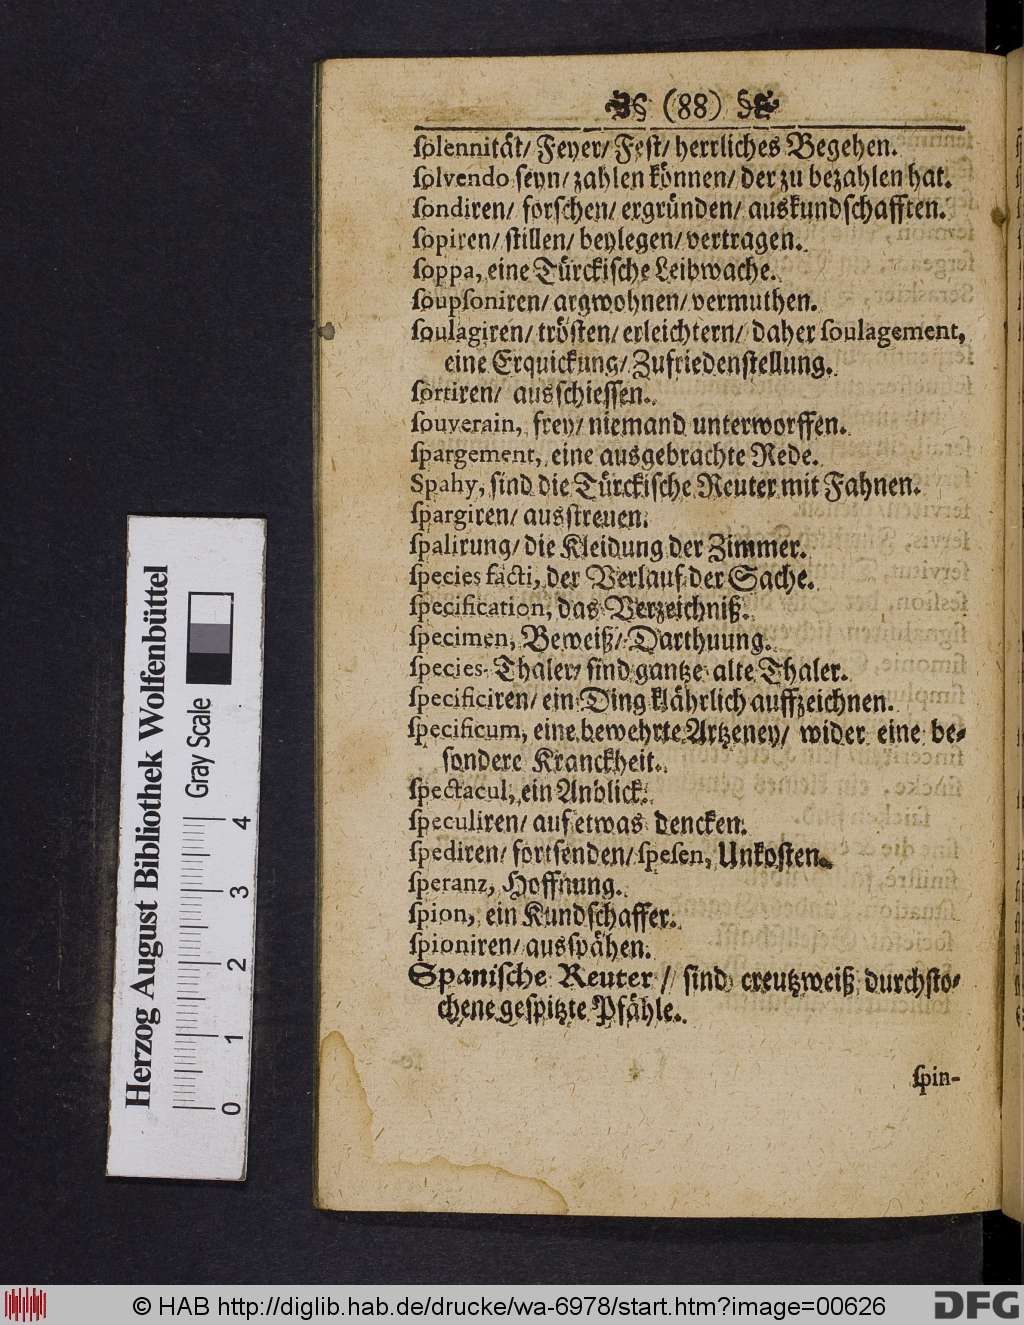 (88)
ſolennität/ Feyer/ Feſt/ herrliches Begehen.
ſolvendo ſeyn/ zahlen können/ der zu bezahlen hat.
ſondiren/ forſchen/ ergründen/ auskundſchafften.
ſopiren/ ſtillen/ beylegen/ vertragen.
ſoppa, eine Türckiſche Leibwache.
ſoupſoniren/ argwohnen/ vermuthen.
ſoulagiren/ tröſten/ erleichtern/ daher ſoulagement,
eine Erquickung/ Zufriedenſtellung.
ſortiren/ ausſchieſſen.
ſouverain, frey/ niemand unterworffen.
ſpargement, eine ausgebrachte Rede.
Spahy, ſind die Türckiſche Reuter mit Fahnen.
ſpargiren/ ausſtreuen.
ſpalirung/ die Kleidung der Zimmer.
ſpecies facti, der Verlauf der Sache.
ſpecification, das Verzeichniß.
ſpecimen, Beweiß/ Darthuung.
ſpecies-Thaler/ ſind gantze alte Thaler.
ſpecificiren/ ein Ding klährlich auffzeichnen.
ſpecificum, eine bewehrte Artzeney/ wider eine be-
ſondere Kranckheit.
ſpectacul, ein Anblick.
ſpeculiren/ auf etwas dencken.
ſpediren/ fortſenden/ ſpeſen, Unkoſten.
ſperanz, Hoffnung.
ſpion, ein Kundſchaffer.
ſpioniren/ ausſpähen.
Spaniſche Reuter // ſind creutzweiß durchſto-
chene geſpitzte Pfähle.
ſpin-
Herzog August Bibliothek Wolfenbüttel
Gray Scale
0 1 2 3 4
© HAB http://diglib.hab.de/drucke/wa-6978/start.htm?image=00626
DFG